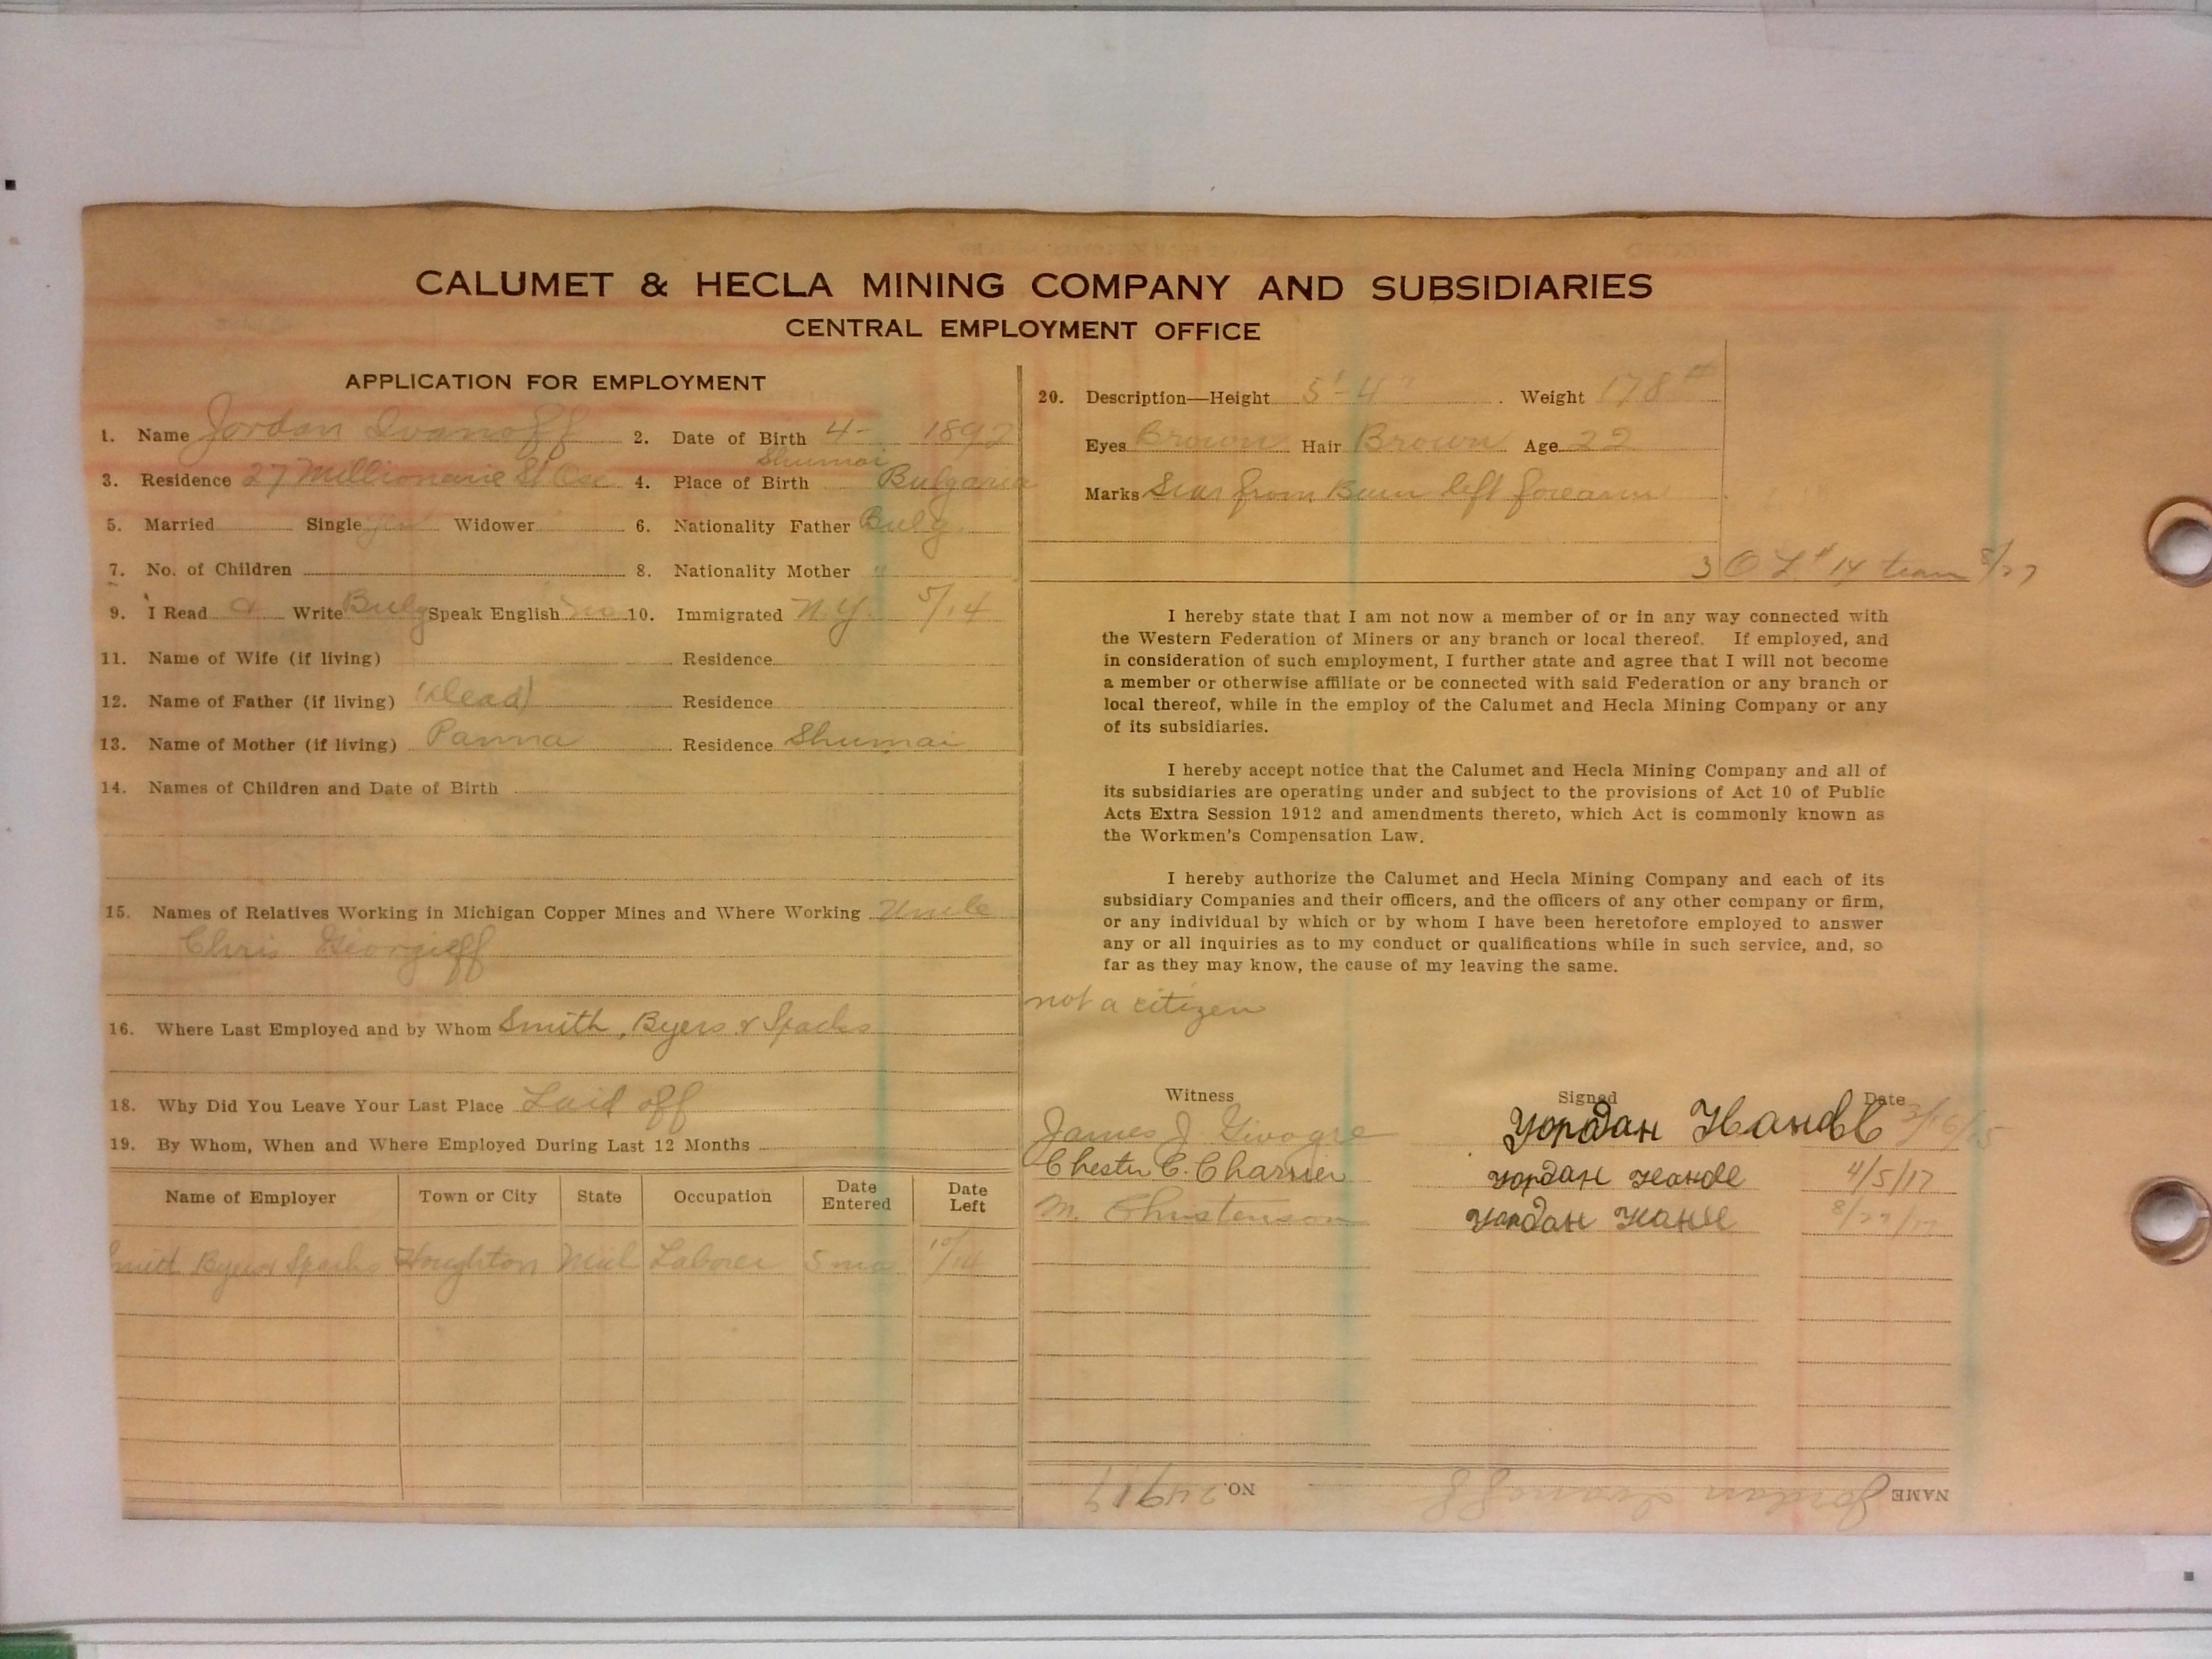 CALUMET & HECLA MINING COMPANY AND SUBSIDIARIES
CENTRAL EMPLOYMENT OFFICE
APPLICATION FOR EMPLOYMENT
1. Name Jordan Ivanoff 2. Date of Birth 4- 1892
Shumai
3. Residence 27 Millionaire St 4. Place of Birth Bulgaria
5. Married Single Widower 6. Nationality Father Bulg.
7. No. of Children 8. Nationality Mother "
9. I Read & Write Bulg Speak English no 10. Immigrated N.Y. 5/14
11. Name of Wife (if living) Residence
12. Name of Father (if living) (Dead) Residence
13. Name of Mother (if living) Panna Residence Shumai
14. Names of Children and Date of Birth
15. Names of Relatives Working in Michigan Copper Mines and Where Working Uncle
Chris Georgieff
16. Where Last Employed and by Whom Smith, Byers & Sparks
18. Why Did You Leave Your Last Place Laid off
19. By Whom, When and Where Employed During Last 12 Months
Name of Employer Town or City State Occupation Date Entered Date Left
Byers & Sparks Houghton Mich Laborer 5 mo 10/14
20. Description—Height 5'-4" Weight 178#
Eyes Brown Hair Brown Age 22
Marks Scar from Burn left forearm
3 O L # 14 tram 8/27
I hereby state that I am not now a member of or in any way connected with
the Western Federation of Miners or any branch or local thereof. If employed, and
in consideration of such employment, I further state and agree that I will not become
a member or otherwise affiliate or be connected with said Federation or any branch or
local thereof, while in the employ of the Calumet and Hecla Mining Company or any
of its subsidiaries.
I hereby accept notice that the Calumet and Hecla Mining Company and all of
its subsidiaries are operating under and subject to the provisions of Act 10 of Public
Acts Extra Session 1912 and amendments thereto, which Act is commonly known as
the Workmen's Compensation Law.
I hereby authorize the Calumet and Hecla Mining Company and each of its
subsidiary Companies and their officers, and the officers of any other company or firm,
or any individual by which or by whom I have been heretofore employed to answer
any or all inquiries as to my conduct or qualifications while in such service, and, so
far as they may know, the cause of my leaving the same.
not a citizen
Witness Signed Date
James J. Йордан 3/16/15
Chester C. Charrier Йордан 4/5/17
M. Christenson Йордан 8/27/17
NAME Jordan Ivanoff NO. 24917